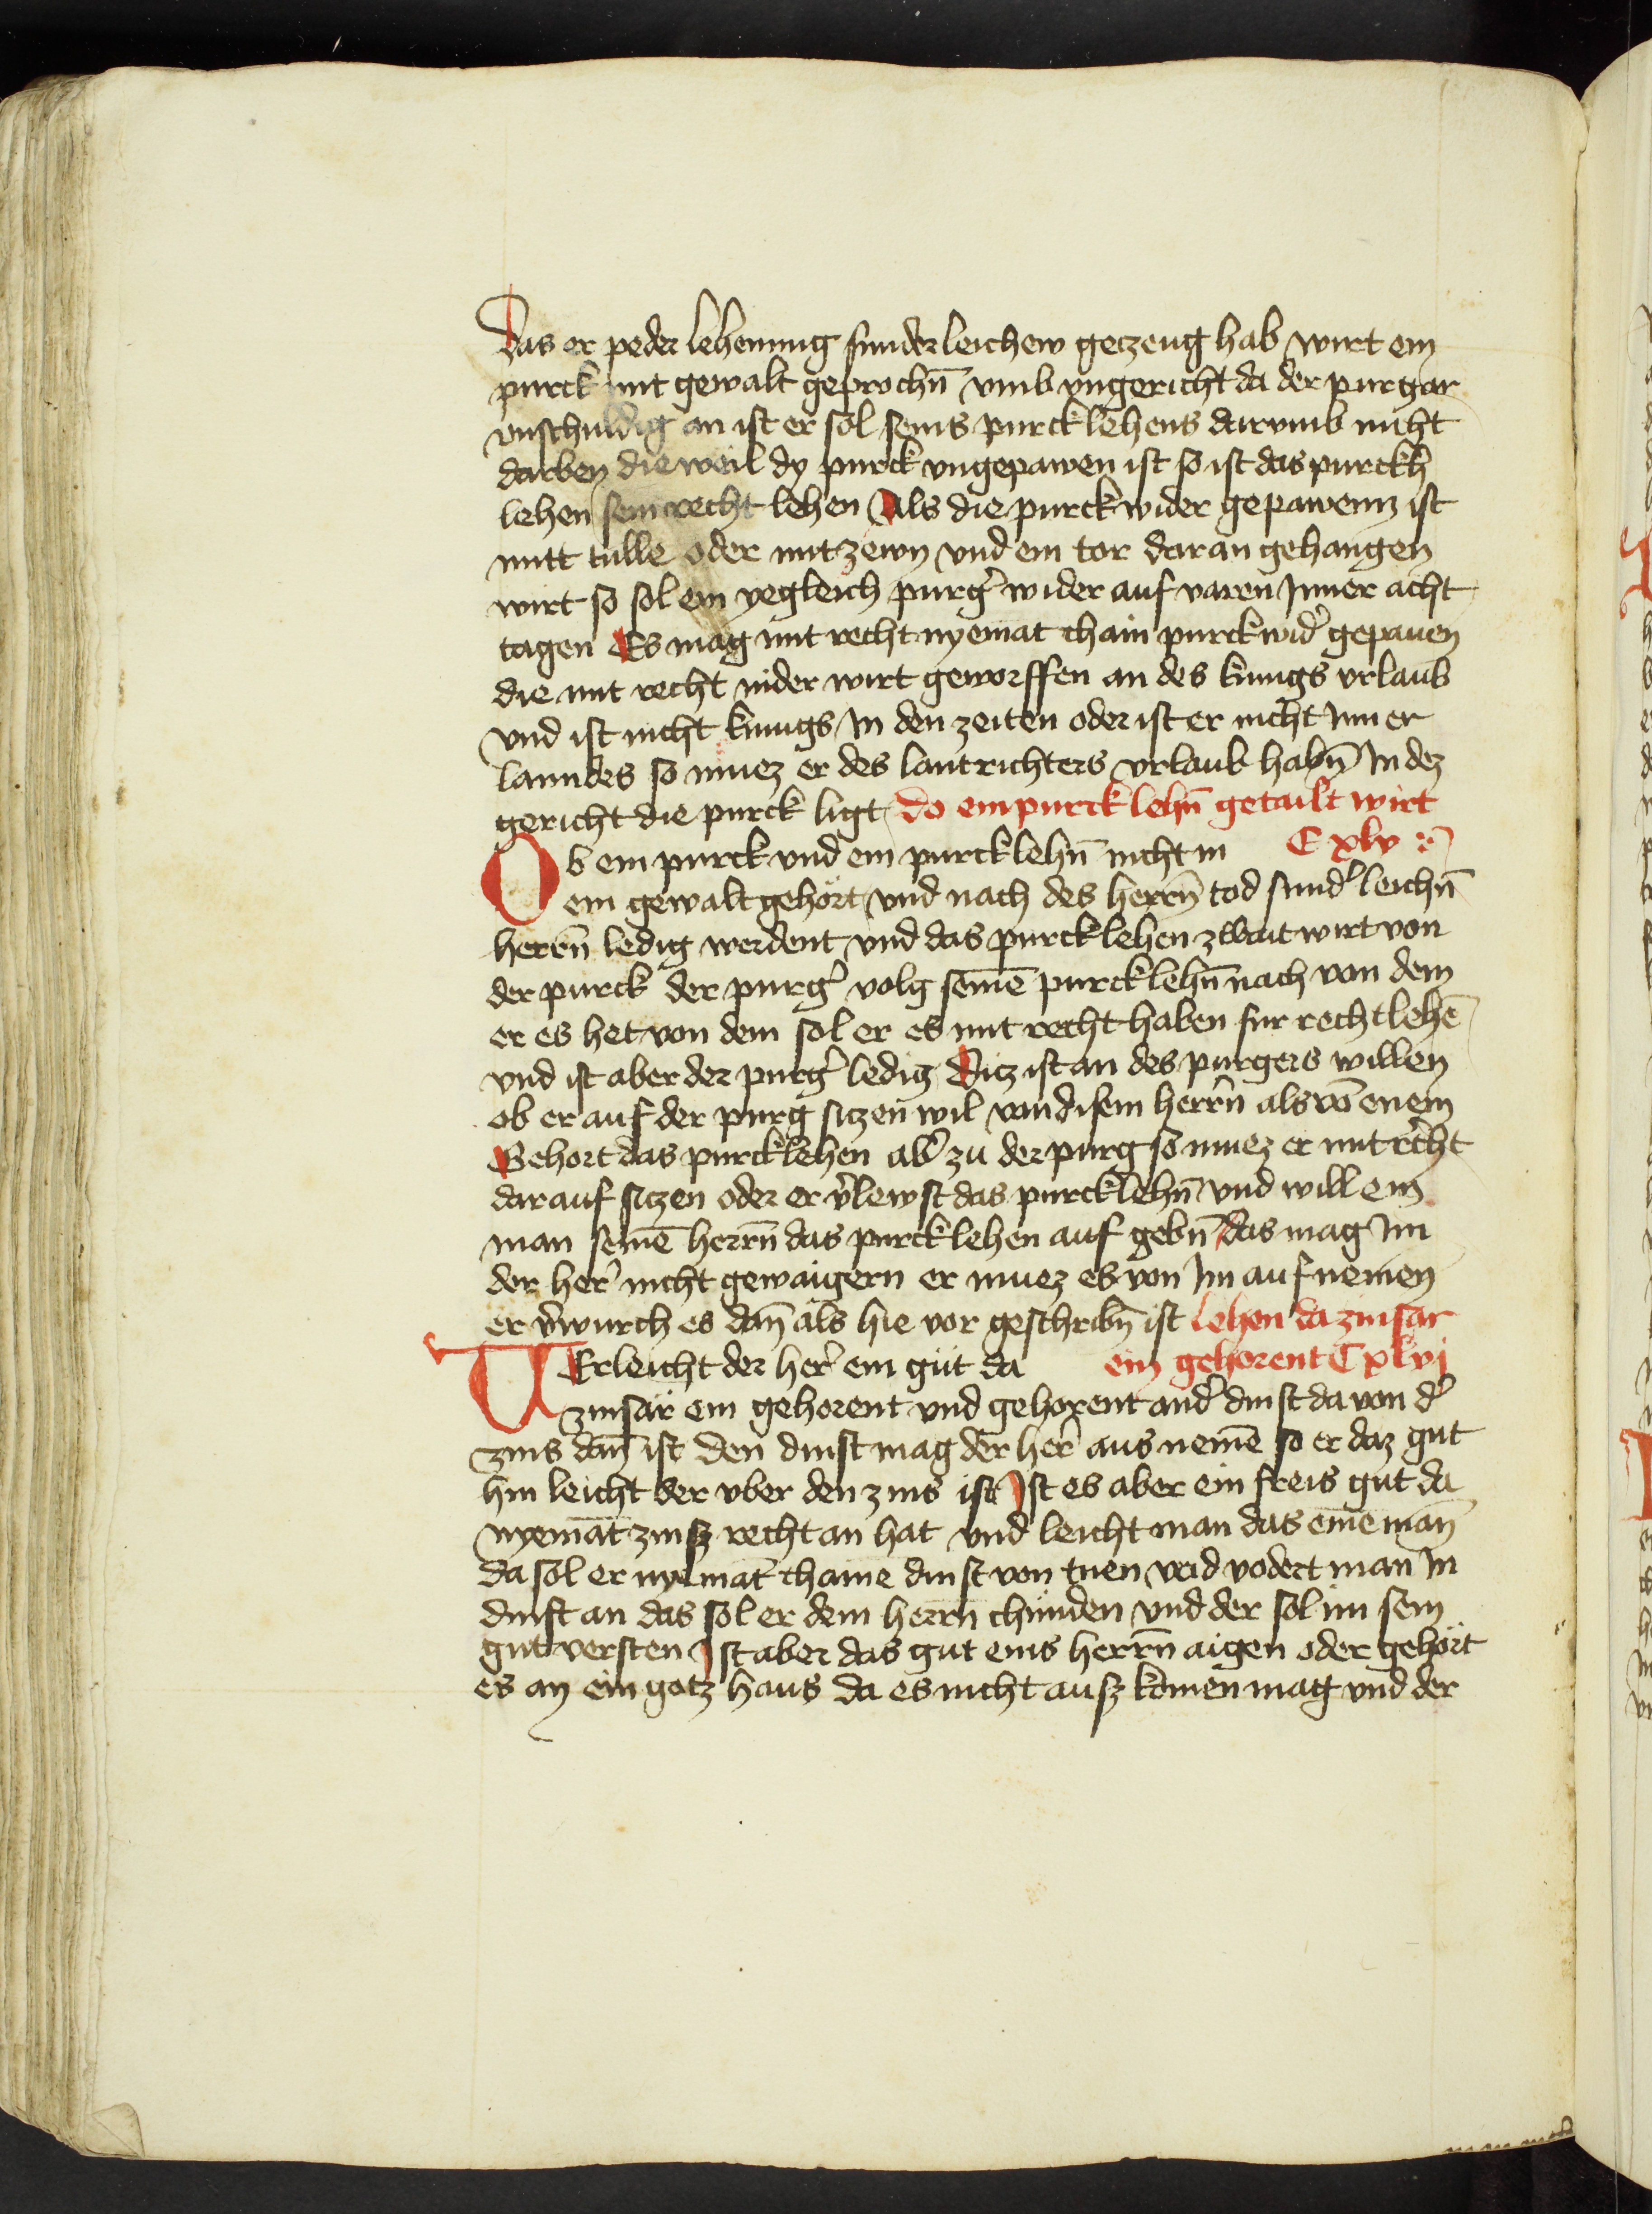 das er peder lehenung sunderleichew geczeug hab wirt ein
purck mit gewalt geprochn̄ vmb vngericht da der purgar
vnschuldig an ist er sol seins purcklehens darvmb nicht
darben die weil dy purck vngepawen ist so ist das purckh
lehen sein recht lehen Als die purck wider gepawenn ist
mitt tulle oder mit zewn vnd ein tor daran gehangen
wirt so sol ein yegleich purgͤr wider auf varen Inner acht
tagen Es mag mit recht nyemāt chain purck widͤ gepauen
die mit recht nider wirt geworffen an des kunigs vrlaub
vnd ist nicht kunigs In den zeiten oder ist er nicht Inner
lanndes so muez er des lantrichters vrlaub habn̄ In dez
gericht die purck ligt do ein purck lehn̄ getailt wirt
Ob ein purck vnd ein purcklehn̄ nicht in C xlv
ein gewalt gehört vnd nach des herrn̄ tod sundͤ leichn̄
herrn̄ ledig werdent vnd das purcklehen zwait wirt von
der purck der purgͤ volg seinē purcklehn̄ nach von dem
er es het von dem sol er es mit recht haben fur recht lehē
vnd ist aber der purgͤ ledig Ditz ist an des purgers willen
ob er auf der purg siczen wil von disem herrn̄ als vō enem
Gehort das purcklehen abͤ zu der purg so muez er mit recht
darauf siczen oder er vͤlewst das purcklehn̄ vnd will ein
man seinē herrn̄ das purcklehen auf gebn̄ das mag Im
der herͤ nicht gewaigern er muez es von Im auf nemen
er vͤwurch es dan̄ als hie vor geschribn̄ ist Lehen da zinsar
VErleicht der herͤ ein gut da ein gehorent C xlvj
zinsär ein gehorent vnd gehorent andͤ dinst da von dͤ
zins dan̄ ist den dinst mag der herͤ aus nemē so er daz gut
hin leicht der vber den zins ist Ist es aber ein freis gut da
nyemāt zinsz recht an hat vnd leicht man das einē man̄
da sol er nyemāt chaine dinst von tuen vnd vodert man In
dinst an das sol er dem herrn̄ chunden vnd der sol im sein
gut versten Ist aber das gut eins herrn̄ aigen oder gehört
es an ein gotz haus da es nicht ausz komen mag vnd der